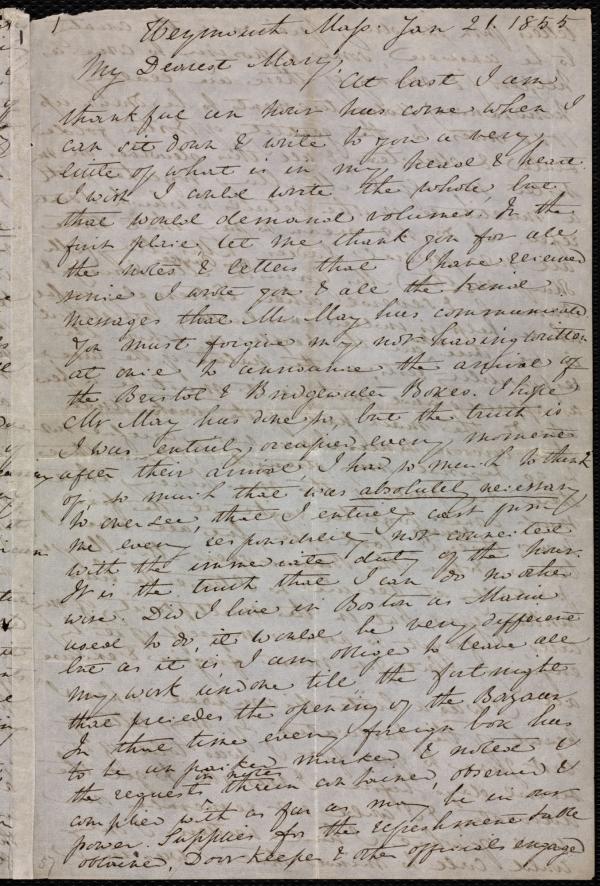 Weymouth Mass. Jan 21. 1855
My Dearest Mary,
At last I am
thankful an hour has come when I
can sit down & write to you a very
little of what is in my head & heart.
I wish I could write the whole, but
that would demand volumes. In the
first place, let me thank you for all
the notes & letters that I have received
since I wrote you & all the kind
messages that Mr May has communicated
You must forgive my not having written
at once to announce the arrival of
the Bristol & Bridgewater Boxes. I hope
Mr May has done so, but the truth is
I was entirely occupied every moment
after their arrival, I had so much to think
of, so much that was absolutely necessary
to oversee, that I entirely cast from
me every responsibility not connected
with the immediate duty of the hour.
It is the truth that I can do no other
wise. Did I live in Boston as Maria
used to do, it would be very different
but as it is I am obliged to leave all
my work undone till the fortnight
that precedes the opening of the Bazaar.
In that time every foreign box has
to be unpacked marked & noted &
the requests in notes therein contained, observed &
complied with as far as may be in our
power. Supplies for the refreshment table
obtained, Door keeper & other officials engaged